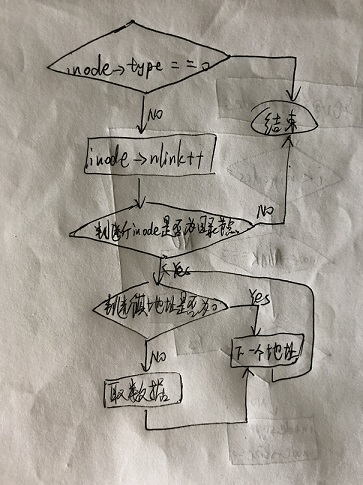 inode→type==0
结束
NO
inode→nlink++
判断inode是否为目录节点
NO
Yes
判断镇地址是否为0
Yes
下一个地址
NO
取数据